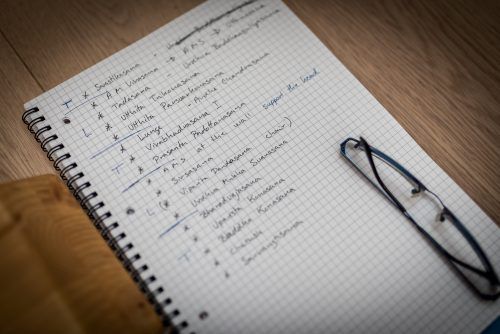 * Swastikasana -
* A.M. Virasana → A.M.S → Uttanasana
T * Tadasana - Urdhva Baddhanguliyasana
* Utthita Trikonasana
* Utthita Parsvakonasana
L * Lunge - Ardha Chandrasana
* Virabhadrasana I
* Prasarita Padottanasana
T * AMS at the wall support the head
* Sirsasana
* Viparita Dandasana (chair)
L (* Urdhva Mukha Svanasana
* Bharadvajasana
* Upavista Konasana
T * Baddha Konasana
* Sarvangasana